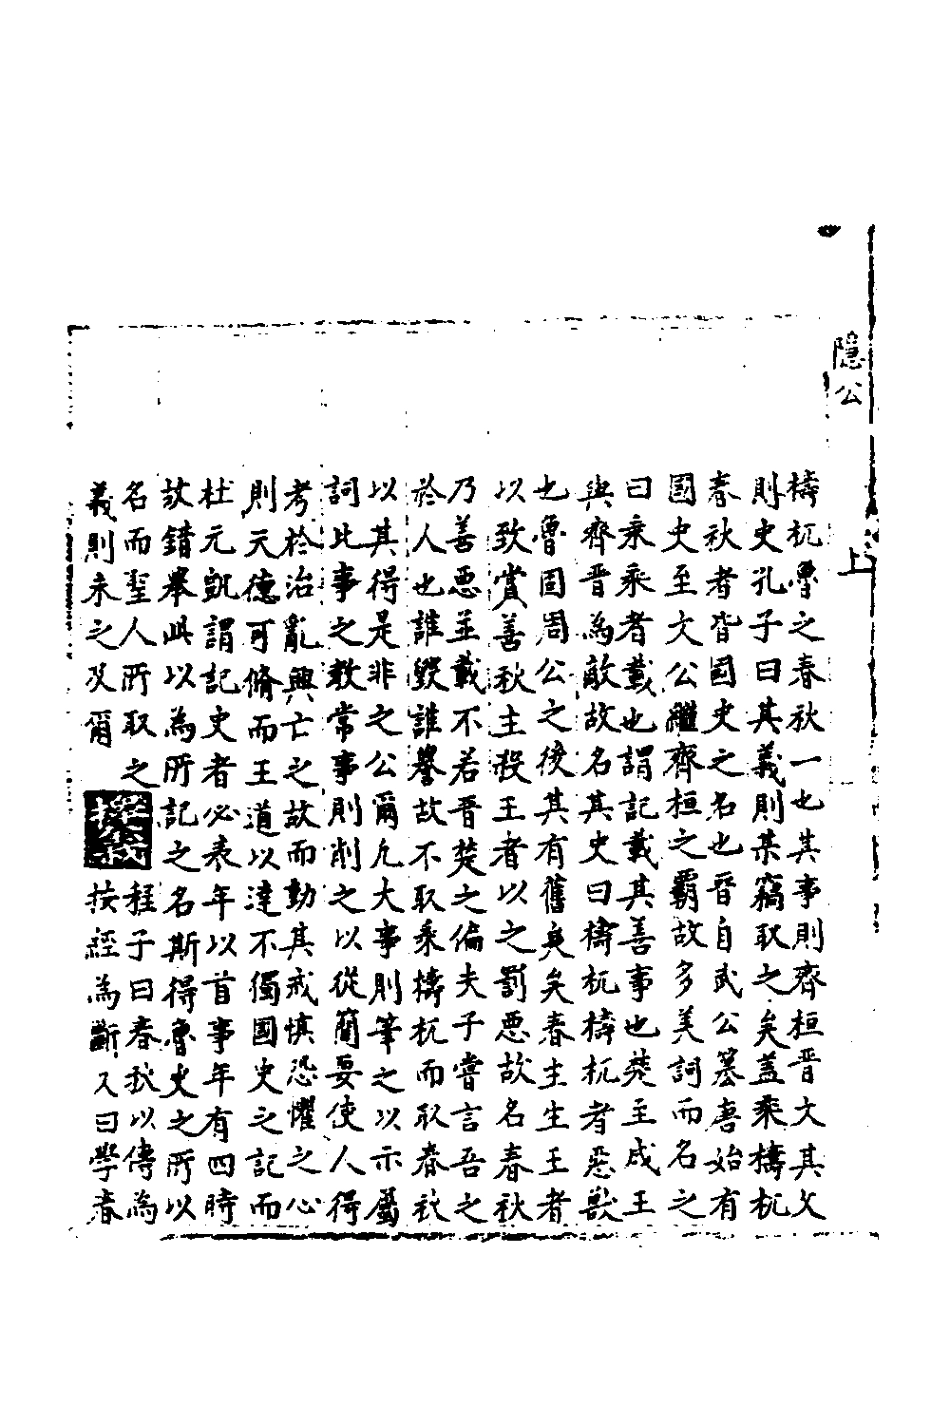 隱公
上
檮杌魯之春秋一也其事則齊桓晉文其文
則史孔子曰其義則某竊取之矣蓋乘檮杌
春秋者皆國史之名也晉自武公簒喜始有
國史至文公繼齊桓之霸故多美詞而名之
曰乘乘者載也謂記載其善事也楚至成王
與齊晉為敵故名其史曰檮杌檮杌者惡獸
也魯固周公之後其有舊史矣春主生王者
以致賞善秋主殺王者以之罰惡故名春秋
乃善惡並載不若晉楚之偏夫子嘗言吾之
於人也誰毀誰譽故不取乘檮杌而取春秋
以其得是非之公爾凡大事則筆之以示屬
詞比事之教常事則削之以從簡要使人得
考於治亂興亡之故而動其戒慎恐懼之心
則天德可脩而王道以達不獨國史之記而
杜元凱謂記史者必表年以首事年有四時
故錯舉此以為所記之名斯得魯史之所以
名而聖人所取之 程子曰春秋以傳為
義則未之及爾 按經為斷又曰學春